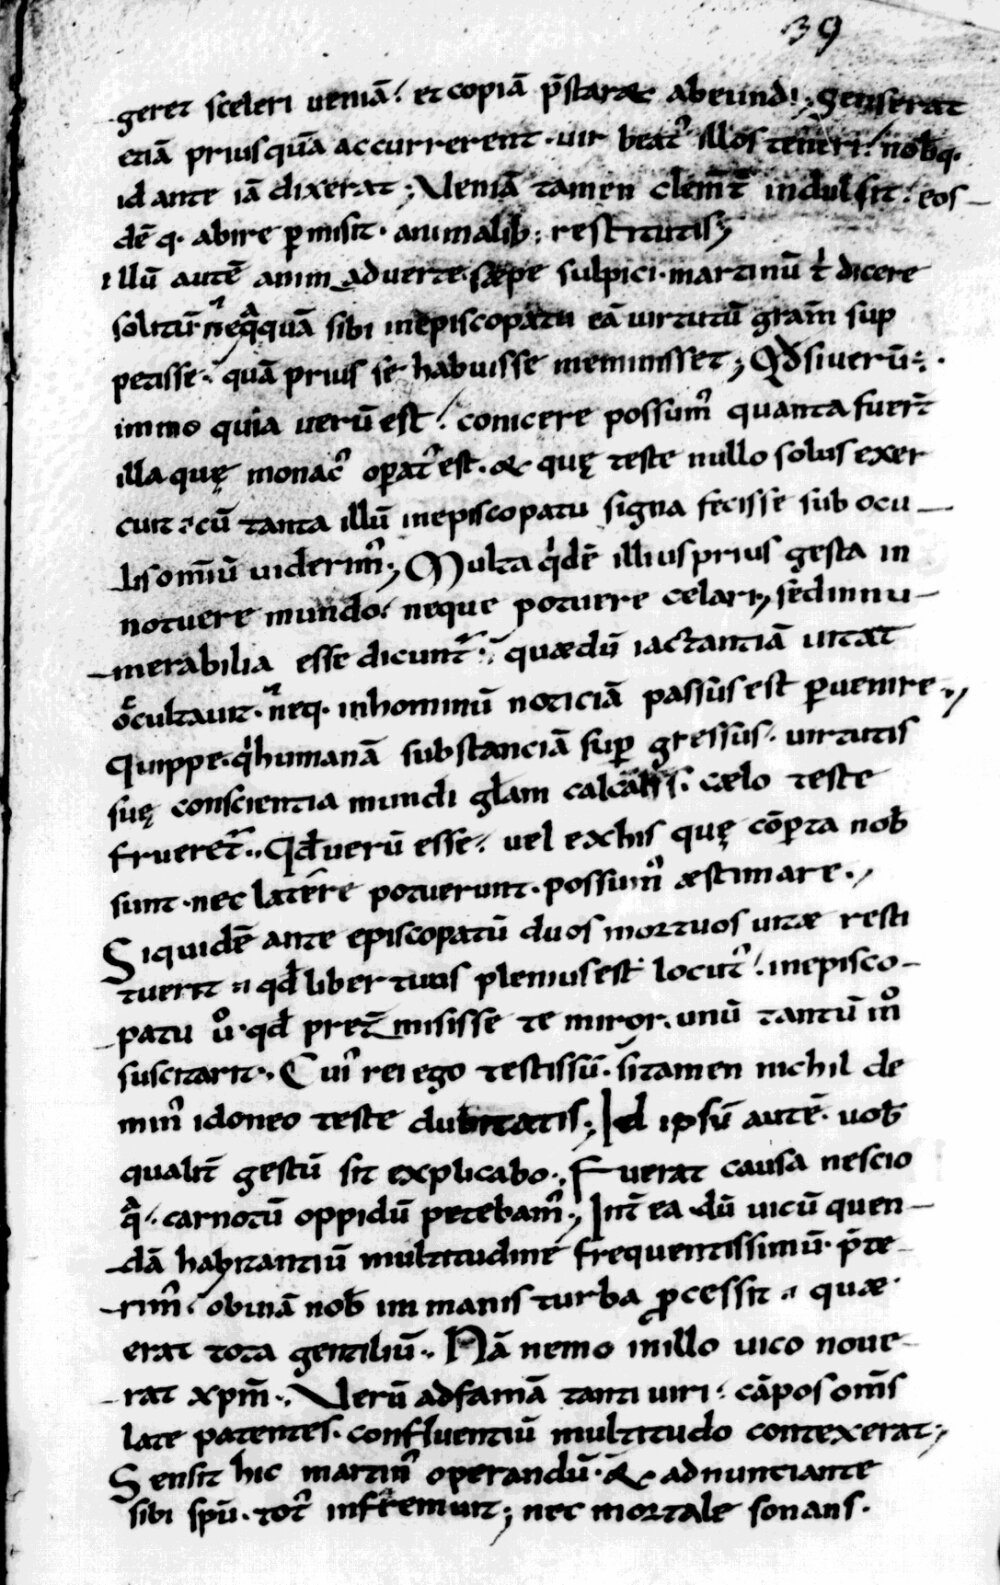 39
geret sceleri ueniā. et copiā p̄staret abeundi; Senserat
etiā priusquā accurrerent. uir beat᷒ illos teneri. nob̄q.
id ante iā dixerat; Veniā tamen clem̄t̄ indulsit. eos-
dē q. abire p̱misit. animalib; restitutis;
illū autē animaduerte. sæpe sulpici. martinū t' dicere
solitū. neq̄quā sibi in episcopatu eā uirtutū grām sup
petisse. quā prius se habuisse meminisset; Qd̄ si uerū.
immo quia uerū est. conicere possum᷒ quanta fuer̄t
illa quę monac᷒ op̱at᷒ est. & quę teste nullo solus exer
cuit. cū tanta illū in episcopatu signa fecisse sub ocu-
lis om̄iū uiderim᷒; Multa q'dē illius prius gesta in
notuere mundo. neque potuere celari; sed innu-
merabilia esse dicunt᷒. quædū iactantiā uitat
occultauit. neq. in hominū noticiā passus est p̱uenire.
Quippe. q' humanā substanciā sup̱gressus. uirtutis
suę conscientia mundi glām calcans. cælo teste
frueret᷒. Qd̄ uerū esse. uel ex his quę cōp̱ta nob̄
sunt. nec latere potuerunt. possum᷒ æstimare.
Siquidē ante episcopatū duos mortuos uitæ resti
tuerit. qd̄ liber tuus plenius est locut᷒. in episco-
patu u̇o. qd̄ pret̄misisse te miror. unū tantū m̊
suscitarit. Cui᷒ rei ego testis sū. si tamen nichil de
min᷒ idoneo teste dubitatis; Id ipsū autē. uob̄
qualit̄ gestū sit explicabo. Fuerat causa nescio
q̄. carnotū oppidū petebam᷒; Int̄ea. dū uicū quen-
dā habitantiū multitudine frequentissimū. p̄te-
rim᷒. obuiā nob̄ immanis turba p̱cessit. quæ
erat tota gentiliū. Nā nemo in illo uico noue-
rat xpm̄. Verū ad famā tanti uiri. cāpos om̄s
late patentes. confluentiū multitudo contexerat;
Sensit hic martin᷒ operandū. & adnunciante
sibi spū. tot᷒ infremuit; nec mortale sonans.